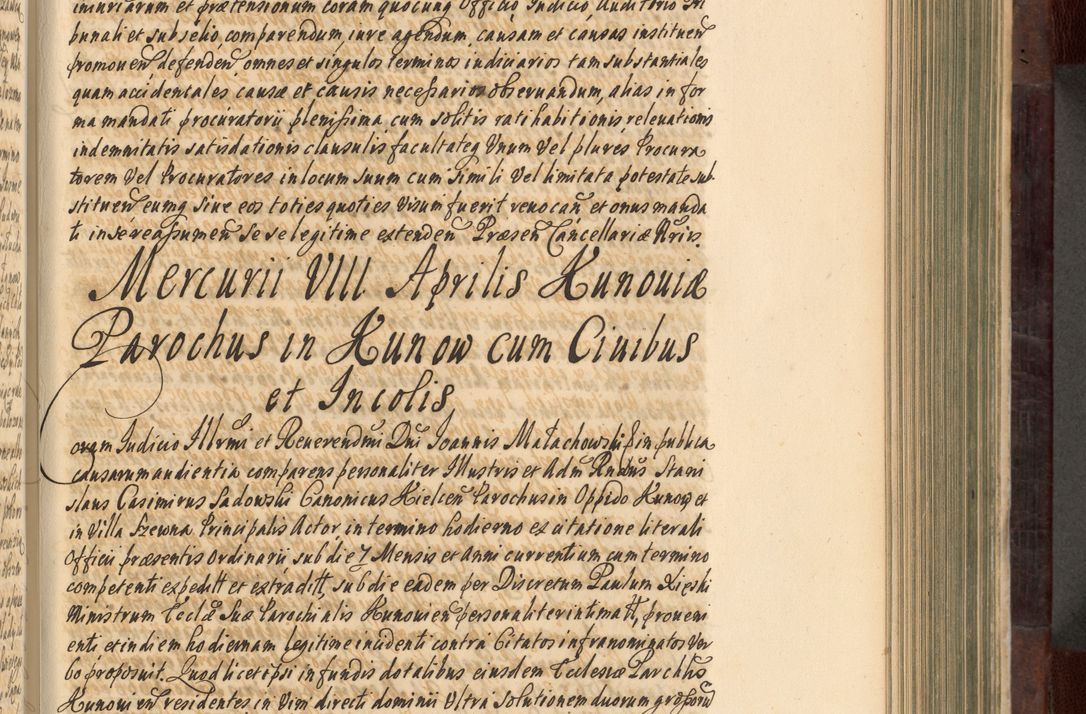 iniuriarum et prætensionum coram quocunq Officio, Iudicio, Auditorio Tri
bunali et subselio, comparendum, iure agendum, causam et causas instituen
promouen defenden, omnes et singulos terminos iudiciarios tam substantiales
quam accidentales causæ et causis necessarios obseruandum, alias in for
ma mandati procuratorii plenissima cum solitis ratihabitionis, releuationis
indemnitatis satisdationis clausulis, facultateq Vnum Vel plures Procura
torem Vel Procuratores in locum Suum cum Simili Vel limitata potestate sub
stituen eumq Siue eos toties quoties Visum fuerit reuocan et onus manda
ti in Se reassumen Se se legitime extenden Præsen Cancellariæ
Mercurii VIII Aprilis Kunouiæ
Parochus in Kunow cum Ciuibus
et Incolis
Coram Iudicio Illrmi et Reuerendmi Dni Ioannis Małachowski in publica
causarum audientia comparens personaliter Illustris et Adm Rndus Stani
slaus Casimirus Sadowski Canonicus Kielcen Parochus in Oppido Kunow et
in Villa Szewna Principalis Actor, in termino hodierno ex citatione literali
Officii præsentis Ordinarii sub die 7 Mensis et Anni currentium cum termino
competenti expeditt et extraditt, sub die eadem per Discretum Paulum
Ministrum Ecclæ Suæ Parochialis Kunouien personaliter intimatt, proueni
enti et in diem hodiernam legitime incidenti contra Citatos infranominatos Ver
bo proposuit. Quod licet ipsi in fundis dotalibus eiusdem Ecclesiæ Parchlis
Kunouien residentes in Vim directi dominii Vltra Solutionem duorum